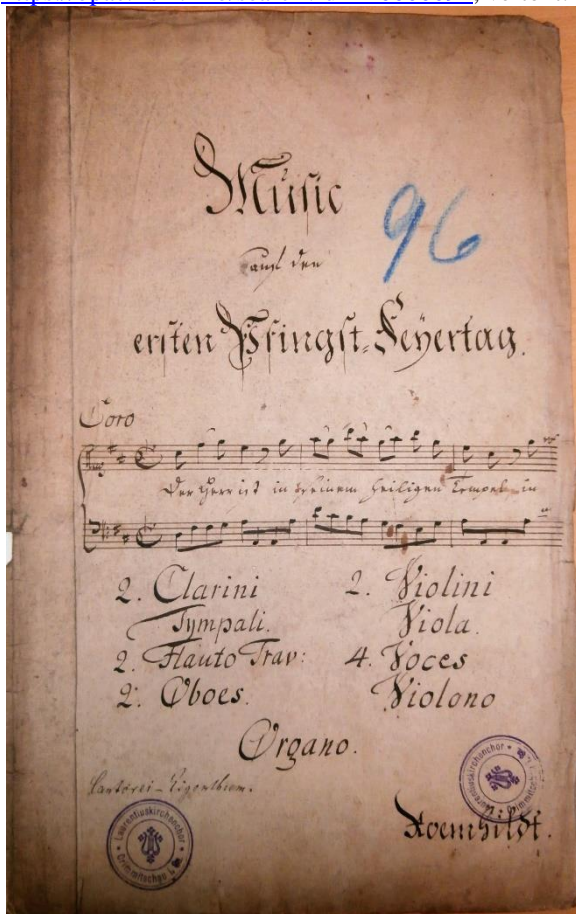 Music
96
auf den
ersten Pfingst-Feyertag.
Coro
Der Herr ist in seinem heiligen Tempel in
2. Clarini
Tympali.
2. Flauto Trav:
2. Oboes.
2. Violini
Viola.
4. Voces
Violono
Organo.
Cantorei-Eigenthum.
Laurentiuskirchenchor
Crimmitschau
Laurentiuskirchenchor
Crimmitschau
Roemhildt.